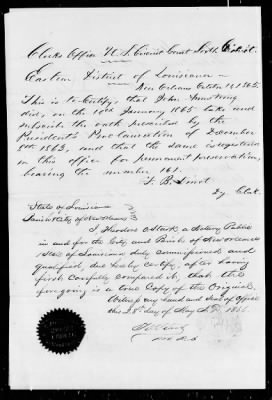 Clerks Office U. S. Circuit Court Sixth District.
Eastern District of Louisiana
New Orleans October 14 1865.
This is to Certify, that John Armstrong
did, on the 10th January 1865 take and
subscribe the oath presented by the
President's Proclamation of December
8th 1863, and that the same is registered
in this office for permanent preservation,
bearing the number 161.
F. B.
Dy Clerk.
State of Louisiana
Parish & City of New Orleans
I, Theodore O. Stark a Notary Public
in and for the City and Parish of New Orleans
State of Louisiana duly commissioned and
qualified, due hereby certify, after having
first Carefully compared it, that the
foregoing is a true Copy of the Original.
Witness my hand and Seal of Office
this 28th day of May A.D. 1866.